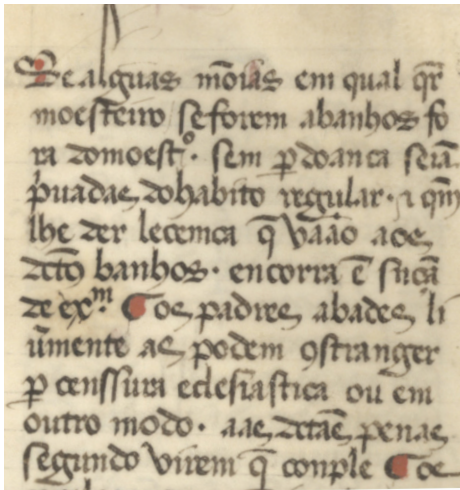 Se alguas mõias em qual qr̃
moesteiro se forem abanhos fo
ra domoestº. sem ꝑdoança seiã
pͥuadas dohabito regular. ⁊ qm̃
lhe der lecemca q̃ vaão aos
dctõs banhos. encorra ẽ sñcã
de exᵐ. ¶ os padres abades li
ũmente as podem ꝯstranger
ꝑ censsura eclesiastica ou em
outro modo. aas dctãs penas
segundo virem q̃ conple ¶ os